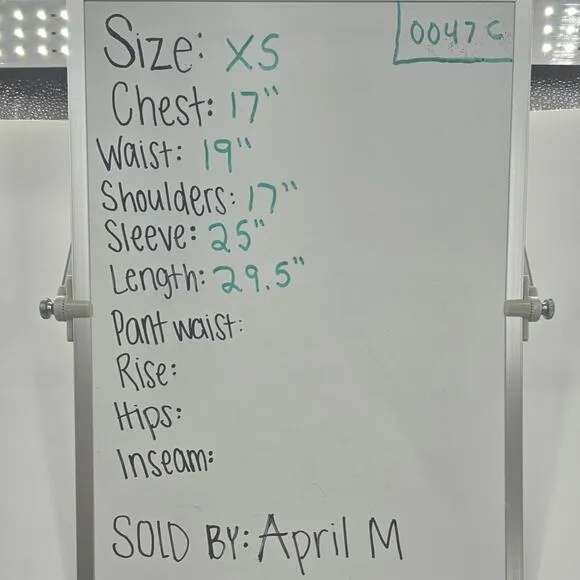 0047 C
Size: XS
Chest: 17"
Waist: 19"
Shoulders: 17"
Sleeve: 25"
Length: 29.5"
Pant waist:
Rise:
Hips:
Inseam:
SOLD BY: April M